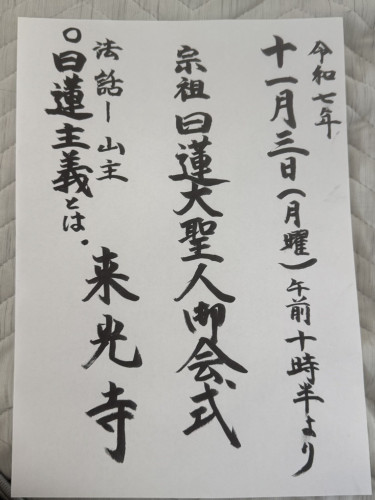 令和七年
十一月三日(月曜)午前十時半より
宗祖日蓮大聖人御会式
法話ー山主
〇日蓮主義とは・
来光寺